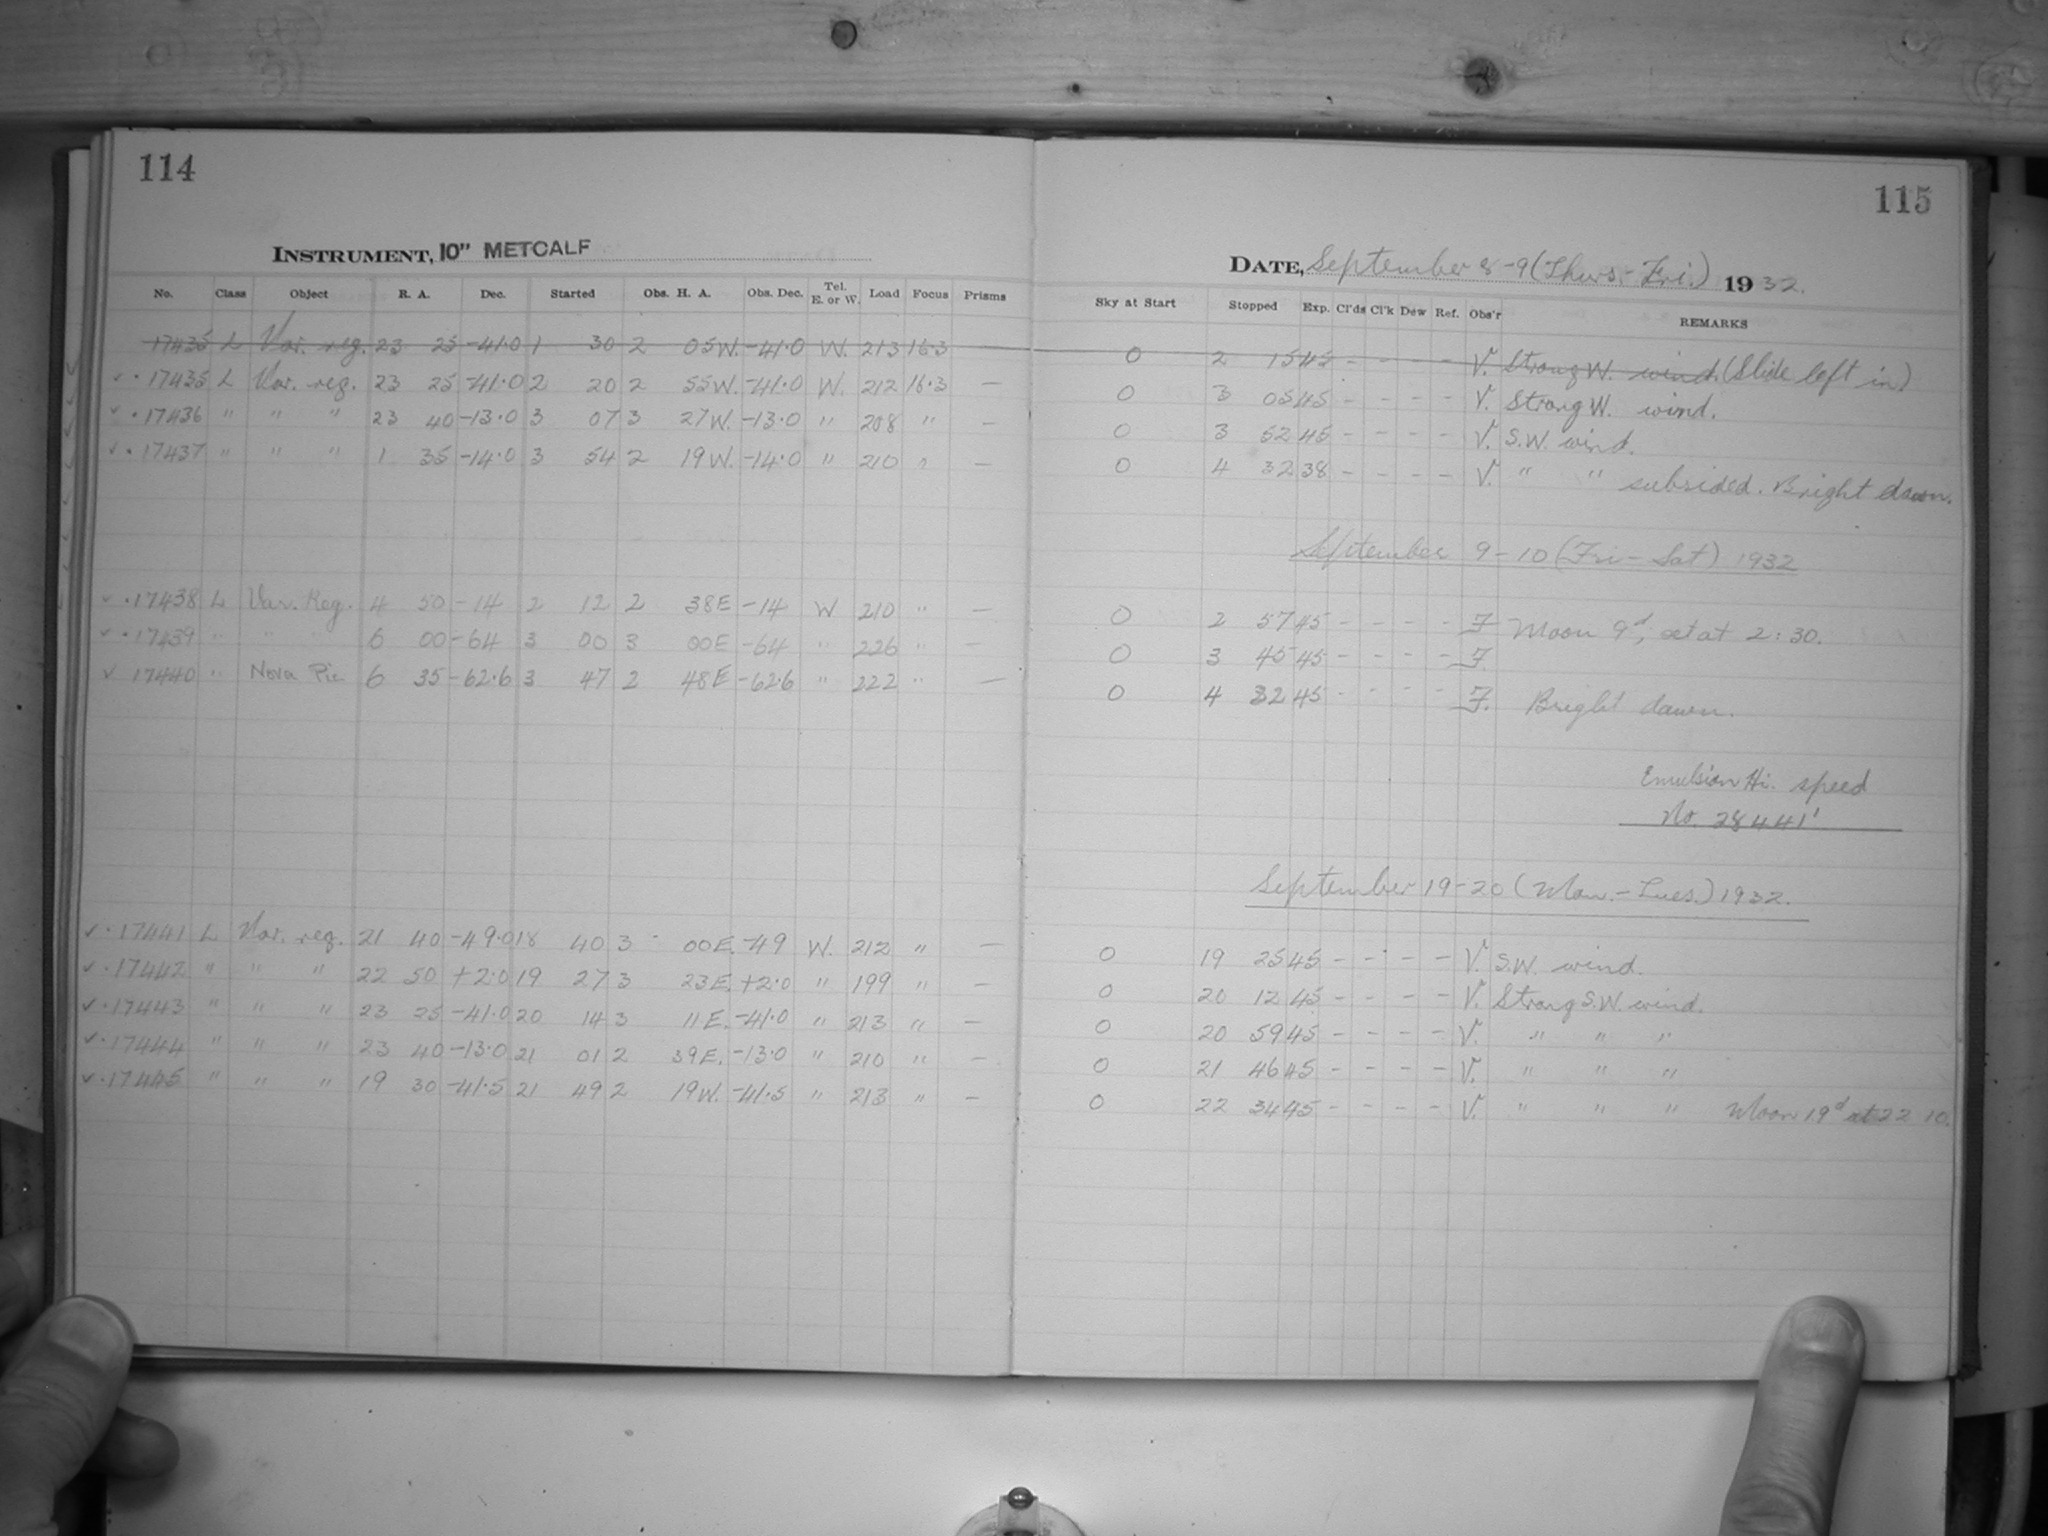 114
INSTRUMENT, 10" METCALF
No. Class Object R. A. Dec. Started Obs. H. A. Obs. Dec. Tel. E. or W. Load Focus Prisms
17435 L Var. reg. 23 25 -41.0 1 30 2 05 W. -41.0 W. 213 16.3
✓ · 17435 L Var. reg. 23 25 -41.0 2 20 2 55 W. -41.0 W. 212 16.3 —
✓ · 17436 " " " 23 40 -13.0 3 07 3 27 W. -13.0 " 208 " —
✓ · 17437 " " " 1 35 -14.0 3 54 2 19 W. -14.0 " 210 " —
✓ · 17438 L Var. Reg. 4 50 -14 2 12 2 38 E -14 W 210 " —
✓ · 17439 " " " 6 00 -64 3 00 3 00 E -64 " 226 " —
✓ 17440 " Nova Pic 6 35 -62.6 3 47 2 48 E -62.6 " 222 " —
✓ · 17441 L Var. reg. 21 40 -49.0 18 40 3 00 E. -49 W. 212 " —
✓ · 17442 " " " 22 50 +2.0 19 27 3 23 E. +2.0 " 199 " —
✓ · 17443 " " " 23 25 -41.0 20 14 3 11 E. -41.0 " 213 " —
✓ · 17444 " " " 23 40 -13.0 21 01 2 39 E. -13.0 " 210 " —
✓ · 17445 " " " 19 30 -41.5 21 49 2 19 W. -41.5 " 213 " —
115
DATE, September 8-9 (Thurs.-Fri.) 1932.
Sky at Start Stopped Exp. Cl'ds Cl'k Dew Ref. Obs'r REMARKS
0 2 15 45 - - - - V. Strong W. wind. (Slide left in)
0 3 05 45 - - - - V. Strong W. wind.
0 3 52 45 - - - - V. S.W. wind.
0 4 32 38 - - - - V. " " subsided. Bright dawn.
September 9-10 (Fri-Sat) 1932
0 2 57 45 - - - - F Moon 9d, set at 2:30.
0 3 45 45 - - - - F.
0 4 32 45 - - - - F. Bright dawn.
Emulsion Hi. speed
No. 28441
September 19-20 (Mon.-Tues.) 1932.
0 19 25 45 - - - - V. S.W. wind.
0 20 12 45 - - - - V. Strong S.W. wind.
0 20 59 45 - - - - V. " " "
0 21 46 45 - - - - V. " " "
0 22 34 45 - - - - V. " " " Moon 19d at 22 10.